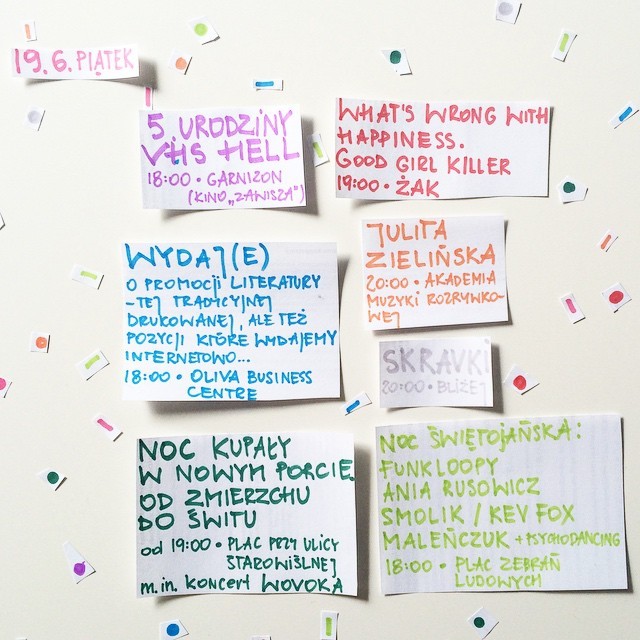 19.6. PIĄTEK
5. URODZINY
VHS HELL
18:00 • GARNIZON
(KINO „ZAWISZA”)
WHAT'S WRONG WITH
HAPPINESS.
GOOD GIRL KILLER
19:00 • ŻAK
WYDAJ(E)
O PROMOCJI LITERATURY
-TEJ TRADYCYJNEJ
DRUKOWANEJ, ALE TEŻ
POZYCJI KTÓRE WYDAJEMY
INTERNETOWO...
18:00 • OLIVA BUSINESS
CENTRE
JULITA
ZIELIŃSKA
20:00 • AKADEMIA
MUZYKI ROZRYWKO-
WEJ
SKRAVKI
20:00 • BLIŻEJ
NOC KUPAŁY
W NOWYM PORCIE.
OD ZMIERZCHU
DO ŚWITU
od 19:00 • PLAC PRZY ULICY
STAROWIŚLNEJ
m.in. koncert WOVOKA
NOC ŚWIĘTOJAŃSKA:
FUNKLOOPY
ANIA RUSOWICZ
SMOLIK / KEV FOX
MALEŃCZUK + PSYCHODANCING
18:00 • PLAC ZEBRAŃ
LUDOWYCH